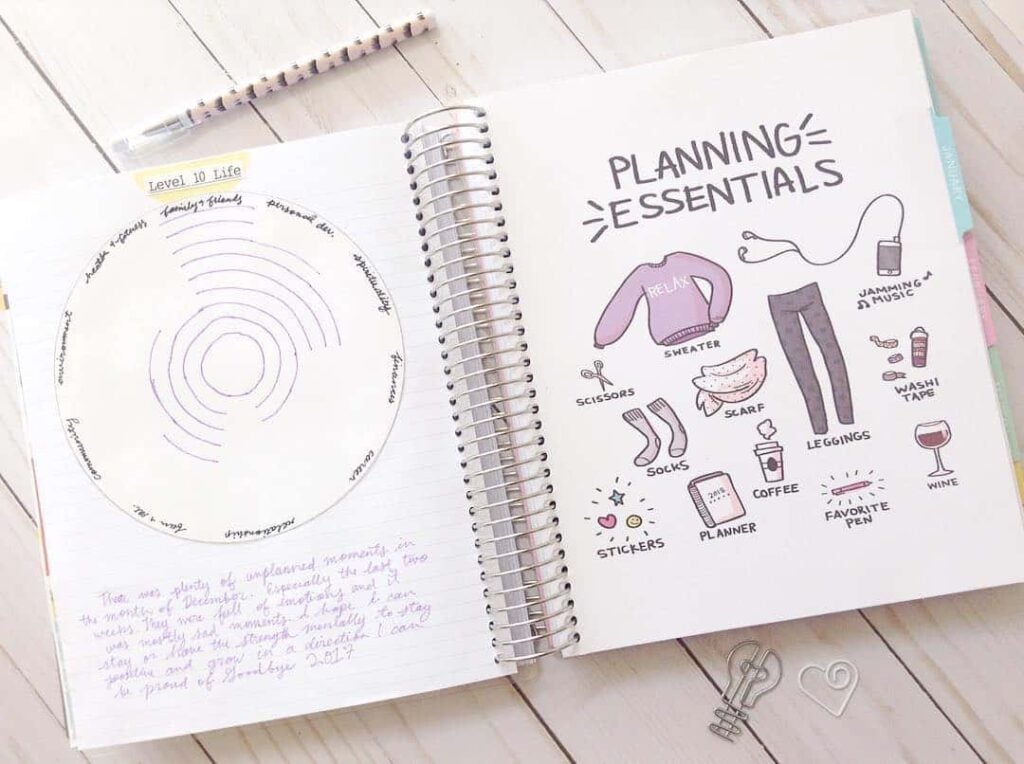 Level 10 Life
family & friends
personal dev.
spirituality
finances
career
relationship
fun & rec
community
environment
health & fitness
There was plenty of unplanned moments in
the month of December. Especially the last two
weeks. They were full of emotions and it
was mostly sad moments. I hope I can
stay or have the strength mentally to stay
positive and grow in a direction I can
be proud of. Goodbye 2017
PLANNING
ESSENTIALS
JANUARY
RELAX
SWEATER
JAMMING
MUSIC
SCISSORS
SCARF
LEGGINGS
WASHI
TAPE
SOCKS
COFFEE
WINE
STICKERS
2018
PLANNER
FAVORITE
PEN